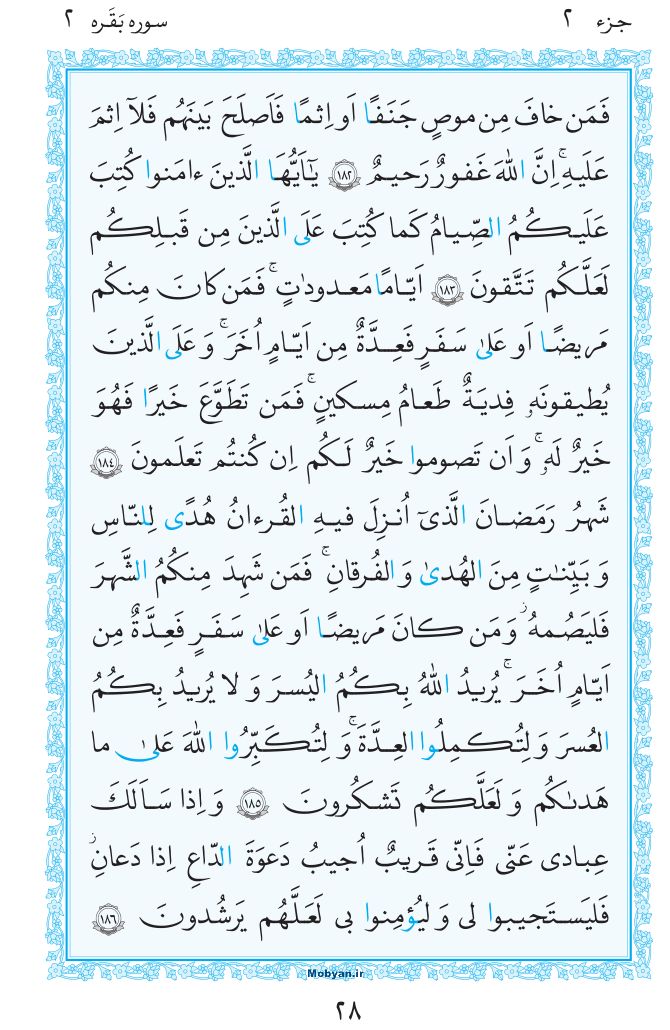 جزء ٢ سوره بَقَره ٢
فَمَن خافَ مِن موصٍ جَنَفًا اَو اِثمًا فَاَصلَحَ بَينَهُم فَلآ اِثمَ
عَلَيهِ ۚ اِنَّ اللهَ غَفورٌ رَحيمٌ ﴿١٨٢﴾ يٰٓاَيُّهَا الَّذينَ ءامَنوا كُتِبَ
عَلَيكُمُ الصِّيامُ كَما كُتِبَ عَلَى الَّذينَ مِن قَبلِكُم
لَعَلَّكُم تَتَّقونَ ﴿١٨٣﴾ اَيّامًا مَعدودٰتٍ ۚ فَمَن كانَ مِنكُم
مَريضًا اَو عَلىٰ سَفَرٍ فَعِدَّةٌ مِن اَيّامٍ اُخَرَ ۚ وَ عَلَى الَّذينَ
يُطيقونَهٗ فِديَةٌ طَعامُ مِسكينٍ ۚ فَمَن تَطَوَّعَ خَيرًا فَهُوَ
خَيرٌ لَهٗ ۚ وَ اَن تَصوموا خَيرٌ لَكُم اِن كُنتُم تَعلَمونَ ﴿١٨٤﴾
شَهرُ رَمَضانَ الَّذىٓ اُنزِلَ فيهِ القُرءانُ هُدًى لِلنّاسِ
وَ بَيِّنٰتٍ مِنَ الهُدىٰ وَ الفُرقانِ ۚ فَمَن شَهِدَ مِنكُمُ الشَّهرَ
فَليَصُمهُ ۖ وَ مَن كانَ مَريضًا اَو عَلىٰ سَفَرٍ فَعِدَّةٌ مِن
اَيّامٍ اُخَرَ ۚ يُريدُ اللهُ بِكُمُ اليُسرَ وَ لا يُريدُ بِكُمُ
العُسرَ وَ لِتُكمِلُوا العِدَّةَ ۚ وَ لِتُكَبِّرُوا اللهَ عَلىٰ ما
هَدىٰكُم وَ لَعَلَّكُم تَشكُرونَ ﴿١٨٥﴾ وَ اِذا سَاَلَكَ
عِبادى عَنّى فَاِنّى قَريبٌ اُجيبُ دَعوَةَ الدّاعِ اِذا دَعانِ ۖ
فَليَستَجيبوا لى وَ ليُؤمِنوا بى لَعَلَّهُم يَرشُدونَ ﴿١٨٦﴾
Mobyan.ir
٢٨